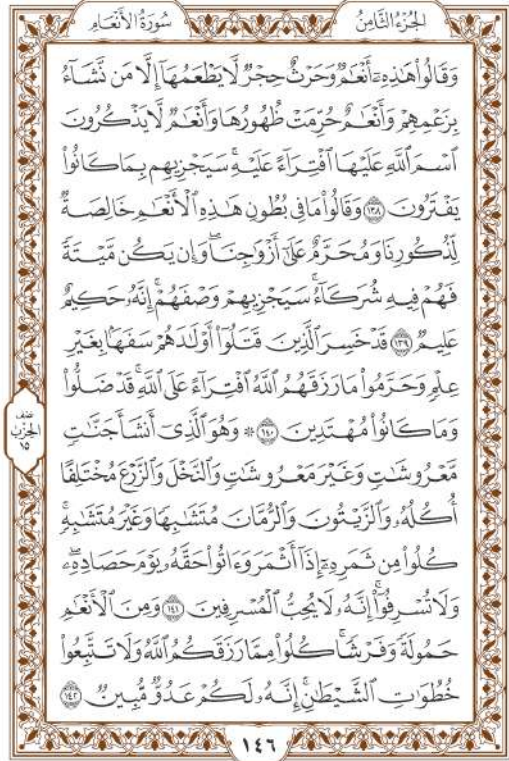 سُورَةُ الأَنْعَامِ
الجُزْءُ الثَّامِنُ
وَقَالُواْ هَٰذِهِۦٓ أَنْعَٰمٞ وَحَرْثٌ حِجْرٞ لَّا يَطْعَمُهَآ إِلَّا مَن نَّشَآءُ
بِزَعْمِهِمْ وَأَنْعَٰمٌ حُرِّمَتْ ظُهُورُهَا وَأَنْعَٰمٞ لَّا يَذْكُرُونَ
ٱسْمَ ٱللَّهِ عَلَيْهَا ٱفْتِرَآءً عَلَيْهِۚ سَيَجْزِيهِم بِمَا كَانُواْ
يَفْتَرُونَ ١٣٨ وَقَالُواْ مَا فِي بُطُونِ هَٰذِهِ ٱلْأَنْعَٰمِ خَالِصَةٞ
لِّذُكُورِنَا وَمُحَرَّمٌ عَلَىٰٓ أَزْوَٰجِنَاۖ وَإِن يَكُن مَّيْتَةٗ
فَهُمْ فِيهِ شُرَكَآءُۚ سَيَجْزِيهِمْ وَصْفَهُمْۚ إِنَّهُۥ حَكِيمٌ
عَلِيمٞ ١٣٩ قَدْ خَسِرَ ٱلَّذِينَ قَتَلُوٓاْ أَوْلَٰدَهُمْ سَفَهَۢا بِغَيْرِ
عِلْمٖ وَحَرَّمُواْ مَا رَزَقَهُمُ ٱللَّهُ ٱفْتِرَآءً عَلَى ٱللَّهِۚ قَدْ ضَلُّواْ
وَمَا كَانُواْ مُهْتَدِينَ ١٤٠ ۞ وَهُوَ ٱلَّذِيٓ أَنشَأَ جَنَّٰتٖ
مَّعْرُوشَٰتٖ وَغَيْرَ مَعْرُوشَٰتٖ وَٱلنَّخْلَ وَٱلزَّرْعَ مُخْتَلِفًا
أُكُلُهُۥ وَٱلزَّيْتُونَ وَٱلرُّمَّانَ مُتَشَٰبِهٗا وَغَيْرَ مُتَشَٰبِهٖۚ
كُلُواْ مِن ثَمَرِهِۦٓ إِذَآ أَثْمَرَ وَءَاتُواْ حَقَّهُۥ يَوْمَ حَصَادِهِۦۖ
وَلَا تُسْرِفُوٓاْۚ إِنَّهُۥ لَا يُحِبُّ ٱلْمُسْرِفِينَ ١٤١ وَمِنَ ٱلْأَنْعَٰمِ
حَمُولَةٗ وَفَرْشٗاۚ كُلُواْ مِمَّا رَزَقَكُمُ ٱللَّهُ وَلَا تَتَّبِعُواْ
خُطُوَٰتِ ٱلشَّيْطَٰنِۚ إِنَّهُۥ لَكُمْ عَدُوّٞ مُّبِينٞ ١٤٢
نصف
الحزب
١٥
١٤٦